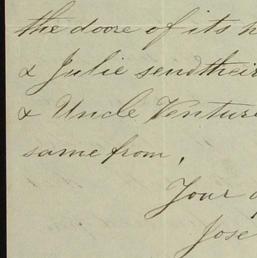 the doore of its h
& Julie send their
& Uncle Venture
same from,
Your a
Jose